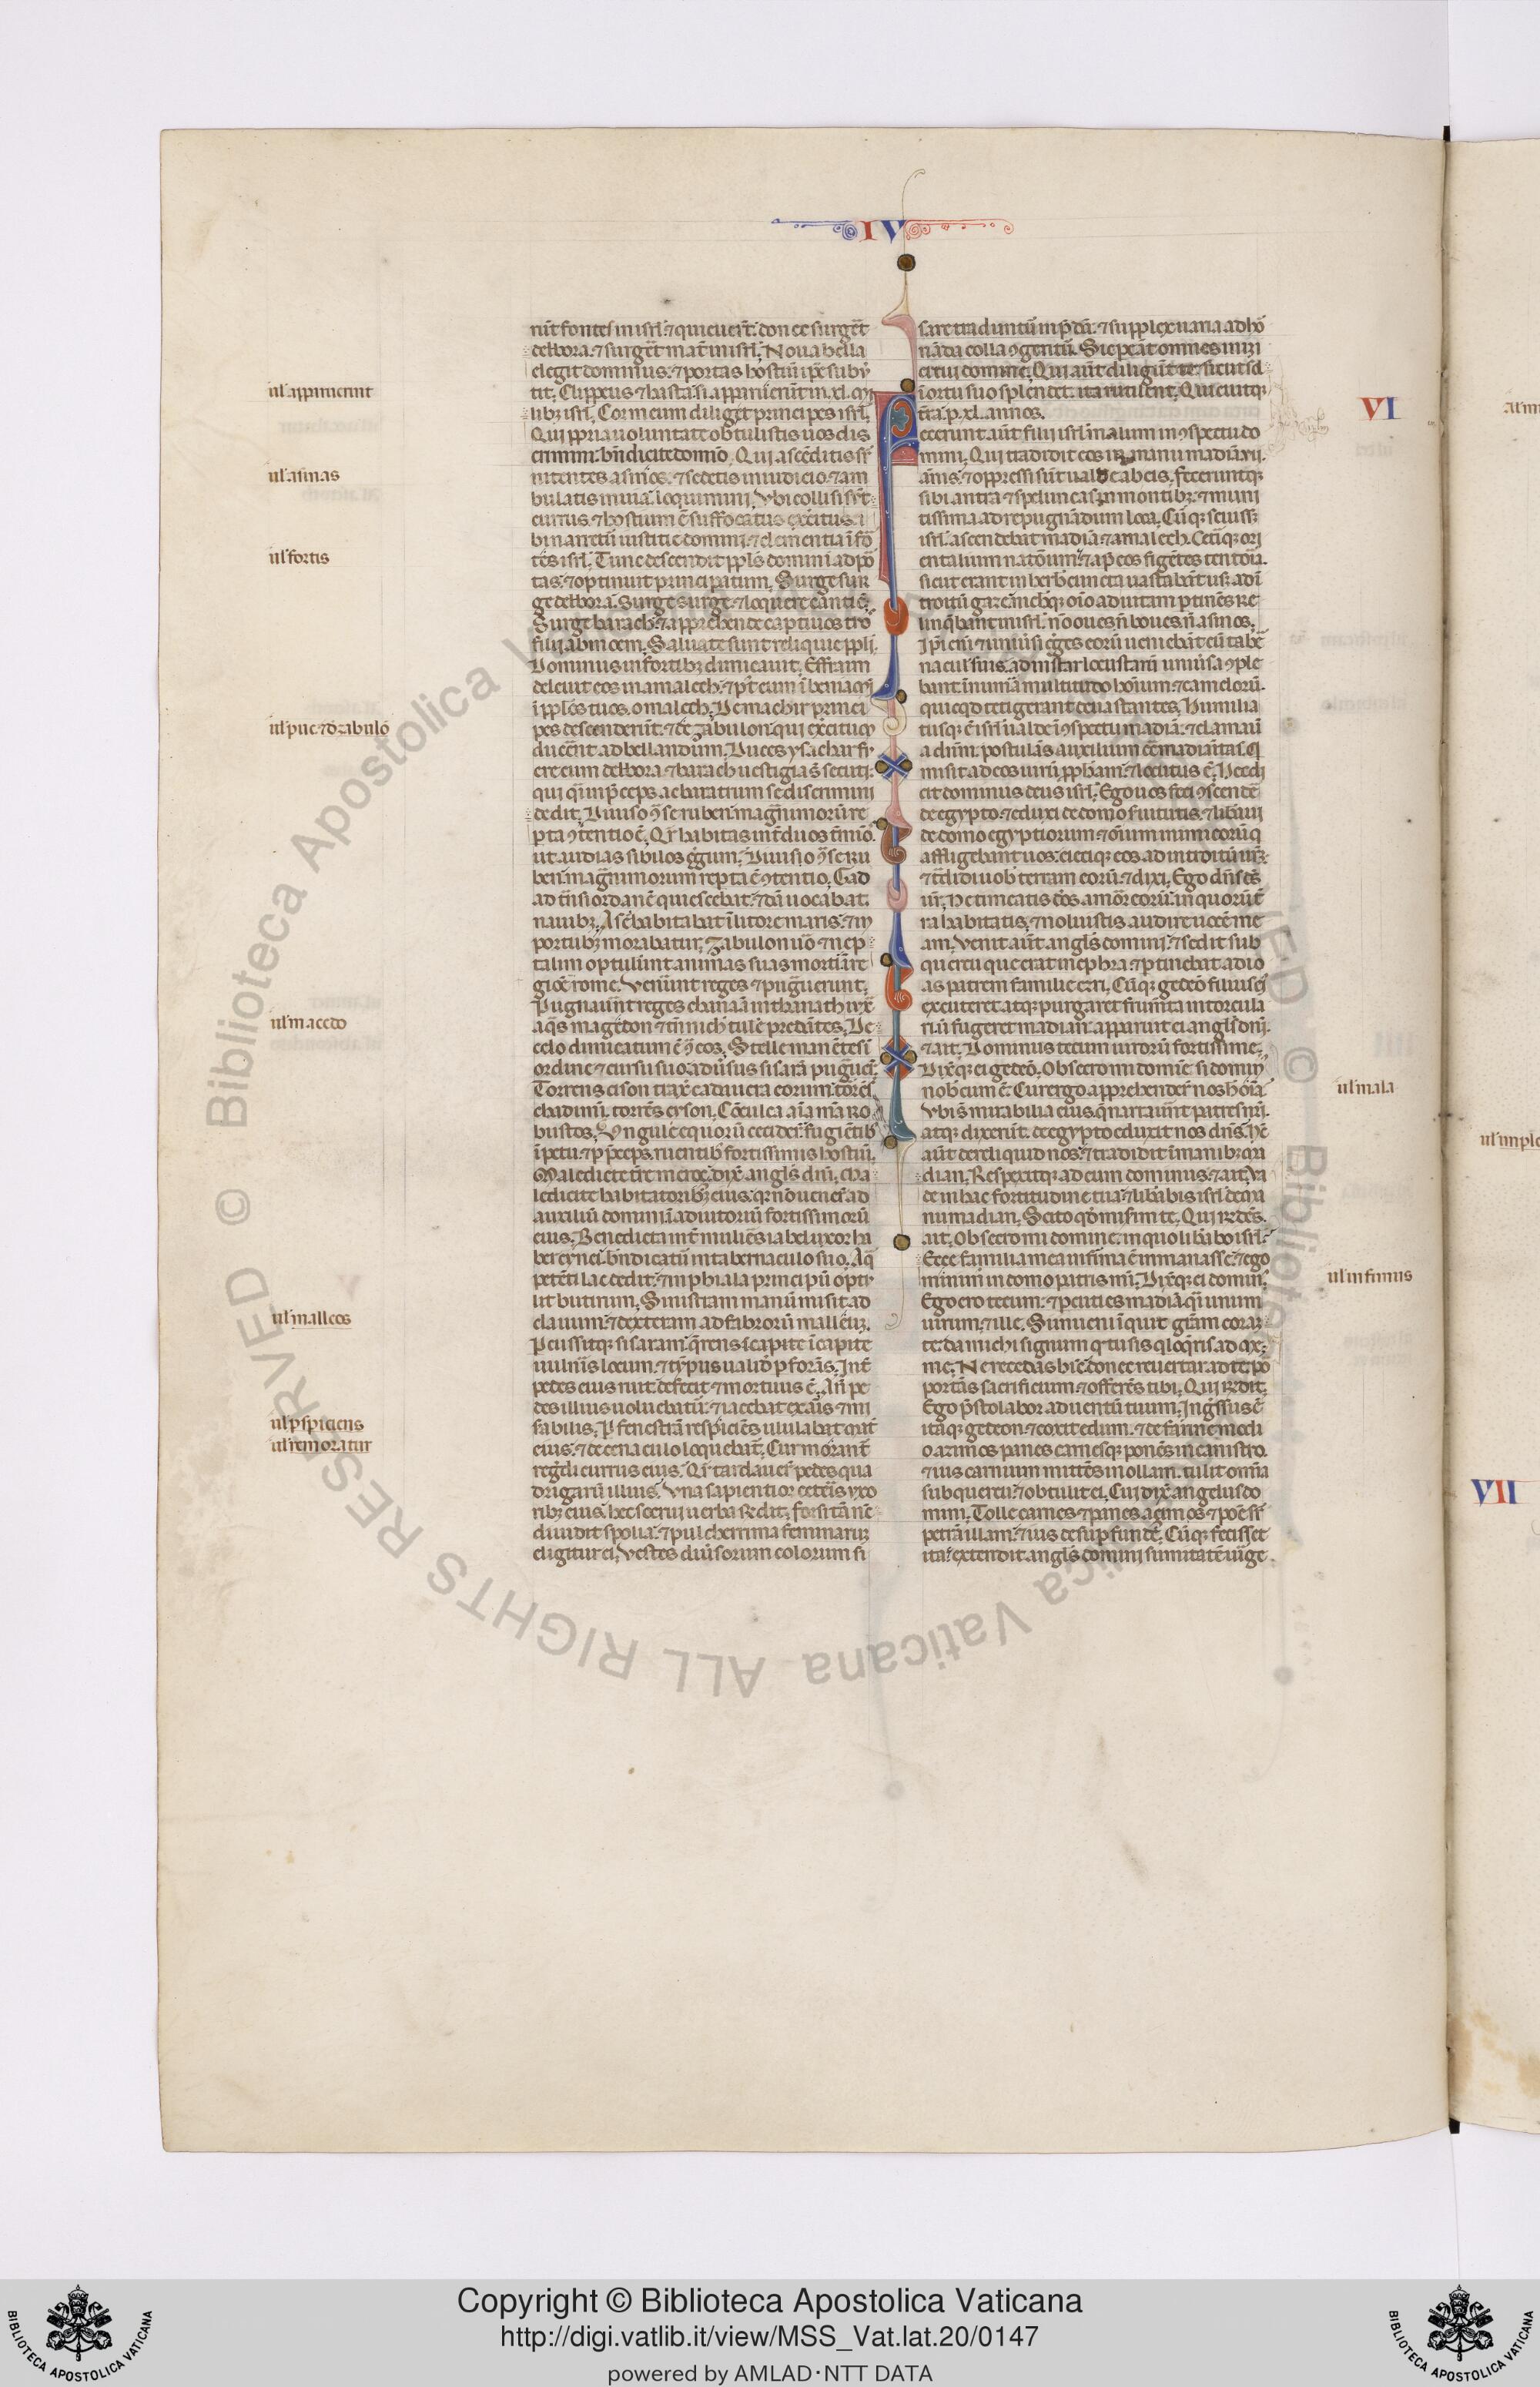 IV
nūt fontes in isrł. ⁊ quieuer̄t. donec surger̄t
delbora. ⁊ surger̄t mat̄ in isrł. Noua bella
elegit dominus. ⁊ portas hostiū ip̄e subuer
tit. Clippeus ⁊ hasta si apparuerint in .xl. mi
libꝫ isrł. Cor meum diliget principes isrł.
Qui ꝓpria uoluntate obtulistis uos dis
crimini. bn̄dicite domino. Qui ascēditis sr̄
nitentes asinos. ⁊ sedetis in iudicio. ⁊ am
bulatis in uia. loquimini. Vbi collisi sūt
currus. ⁊ hostium ē suffocatus exercitus. i
bi narrent̄ iustitie domini. ⁊ clementia ī for
tes isrł. Tunc descendit ppl̄s domini ad por
tas. ⁊ optinuit principatum. Surge sur
ge delbora. Surge surge. ⁊ loquere canticū.
Surge barach. ⁊ apprehende captiuos tuos
fili abinoem. Saluate sunt reliquie ppl̄i.
Dominus in fortibꝫ dimicauit. Effraim
deleuit eos in amalech. ⁊ p̄t eum ī beniamī
ī ppl̄os tuos. o malech. De machir princi
pes descenderūt. ⁊ de zabulon qui exercitum
ducer̄nt ad bellandum. Duces ysachar fu
ere cum delbora. ⁊ barach uestigia st̄ secuti.
qui q̄ī in p̄ceps ac baratrum se discrimini
dedit. Diuiso ꝯ se ruben. magnanimorū re
perta ꝯtentio ē. Qr̄ habitas int̄ duos t̄minos.
ut audias sibilos gregum. Diuiso ꝯ se ru
ben. magnanimorum reperta ē ꝯtentio. Gad
ad t̄ns iordanē quiescebat. ⁊ dan uacabat
nauibꝫ. Aser habitabat ī litore maris. ⁊ in
portubꝫ morabatur. Zabulon uō ⁊ nep
talim optulerunt animas suas morti in re
gione rome. Venerunt reges ⁊ pugnauerunt.
Pugnauer̄nt reges chanaan in thanath iuxta
aquas magedon ⁊ tn̄ nichil tulere predantes. De
celo dimicatum ē ꝯ eos. Stelle manentes ī
ordine ⁊ cursu suo. aduersus sisaram pugnauer̄t.
Torrens cison traxit cadauera eorum. torrens
cadimim. torrens cison. Cōculca aīa mea ro
bustos. Vngule equorū ceciderūt. fugientibꝫ
īpetu. ⁊ ꝑ p̄ceps ruentibꝫ fortissimis hostiū.
Maledicite terre meroz. dixit angl̄s dn̄i. ma
ledicite habitatoribꝫ eius. qr̄ nō uener̄t ad
auxiliū domini. ī adiutoriū fortissimorū
eius. Benedicta int̄ mulieres iahel uxor ha
ber cynei. bn̄dicatur in tabernaculo suo. Aquā
petenti lac dedit. ⁊ in phiala principū optu
lit butirum. Sinistram manū misit ad
clauum. ⁊ dexteram ad fabrorū malleum.
Percussitqꝫ sisaram. q̄rens ī capite ī capite
uulneris locum. ⁊ tympus ualide perforans. Int̄
pedes eius ruit. defecit ⁊ mortuus ē. An̄ pe
des illius uoluebatur. ⁊ iacebat exanimis ⁊ mi
sabilis. Per fenestrā respiciens ululabat mat̄
eius. ⁊ de cenaculo loquebat̄. Cur morat̄
regredi currus eius. Qr̄ tardauer̄t pedes qua
drigarū illius. Vna sapientior ceteris uxo
ribꝫ eius. hec socrui uerba reddit. forsitā nūc
diuidit spolia. ⁊ pulcherrima feminarum
eligitur ei. Vestes diuersorum colorum si
sare traduntū in p̄dā. ⁊ suppellex uaria ad or
nāda colla ꝯgeritū. Sic per̄at omnes inimi
ci tui domine. Qui aūt diligūt te. sicut sol
ī ortu suo splendet. ita rutilent. Quieuitqꝫ
t̄ra p̄ .xl. annos.
Fecerunt aūt filii isrł malum in ꝯspectu do
mini. Qui tradidit eos in manu madiā .vii.
annis. ⁊ oppressi sūt ualde ab eis. feceruntqꝫ
sibi antra ⁊ speluncas in montibꝫ. ⁊ muni
tissima ad repugnādum loca. Cūqꝫ seuisset
isrł. ascendebat madiā ⁊ amalech. Ceteriqꝫ ori
entalium nationum. ⁊ aput eos figentes tentoria.
sicut erant in herbis cuncta uastabāt usqꝫ ad ī
troitū gaze. nichilqꝫ oīo ad uitam pertinens re
linquebant in isrł. nō oues n̄ boues n̄ asinos.
Ipsi enī ⁊ uniuersi greges eorū ueniebāt cū taber
naculis suis. ad instar locustarū uniuersa ꝯple
bant. innumera multitudo hoīum. ⁊ camelorū.
quicqd̄ tetigerant deuastantes. Humilia
tusqꝫ ē isrł ualde ī ꝯspectu madiā. ⁊ clamauit
ad dn̄m. postulās auxilium ꝯtra madianitas. Qui
misit ad eos uirū ꝓphetam. ⁊ locutus ē. Hec di
cit dominus deus isrł. Ego uos feci ꝯscendere
de egypto. ⁊ eduxi de domo seruitutis. ⁊ liberaui
de domo egyptiorum ⁊ oīum inimicorū qui
affligebant uos. eiecique eos ad introitū urm̄.
⁊ tradidi uob terram eorū. ⁊ dixi. Ego dn̄s deus
ur̄. Ne timeatis deos amorreorū. in quorū ter
ra habitatis. ⁊ noluistis audire uocē me
am. Venit aūt angl̄s domini. ⁊ sedit sub
quercu que erat in ephra. ⁊ pertinebat ad io
as patrem familie ezri. Cūqꝫ gedeō filius eius
excuteret. atqꝫ purgaret frumenta in torcula
ri. ū fugeret madian. apparuit ei angl̄s dn̄i.
⁊ ait. Dominus tecum uirorū fortissime.
Dixitqꝫ ei gedeō. Obsecro mi domine. si domin
nobiscum ē. Cur ergo apprehenderūt nos hec oīa.
Vbi st̄ mirabilia eius. que narrauer̄nt patres nr̄i.
atqꝫ dixerūt. de egypto eduxit nos dn̄s. Nūc
aūt dereliquid nos. ⁊ tradidit ī manibꝫ ma
dian. Respexitqꝫ ad eum dominus. ⁊ ait. Va
de in hac fortitudine tua. ⁊ liberabis isrł de ma
nu madian. Scito qd̄ miserim te. Qui respondens.
ait. Obsecro mi domine. in quo liberabo isrł.
Ecce familia mea infima ē in manasse. ⁊ ego
minimus in domo patris mei. Dixitqꝫ ei dominus.
Ego ero tecum. ⁊ percuties madiā q̄ī unum
uirum. ⁊ ille. Si inueni inquit gratiam coram
te. da michi signum q̄ tu sis q̄ loqueris ad
me. Ne recedas hinc. donec reuertar ad te. por
portans sacrificium. ⁊ offerens tibi. Qui respondit.
Ego p̄stolabor aduentū tuum. Ingressus ē
itaqꝫ gedeon. ⁊ coxit edum. ⁊ de farine modi
o azimos panes. carnesqꝫ ponens in canistro.
⁊ ius carnium mittens in ollam. tulit omnia
sub quercu. ⁊ obtulit ei. Cui dixit angelus do
mini. Tolle carnes ⁊ panes azimos. ⁊ pone sr̄
petrā illam. ⁊ ius desuper funde. Cūqꝫ fecisset
ita. extendit angl̄s domini sumitatē uirge
ul' apparuerint
ul' asinas
ul' fortis
ul' duc. ⁊ d' zabulō
ul' macedo
ul' malleos
ul' p̄spiciens
ul' remoratur
VI
ul' mala
ul' infimus
VII
© Biblioteca Apostolica Vaticana ALL RIGHTS RESERVED
Copyright © Biblioteca Apostolica Vaticana
http://digi.vatlib.it/view/MSS_Vat.lat.20/0147
powered by AMLAD·NTT DATA
BIBLIOTECA APOSTOLICA VATICANA
BIBLIOTECA APOSTOLICA VATICANA